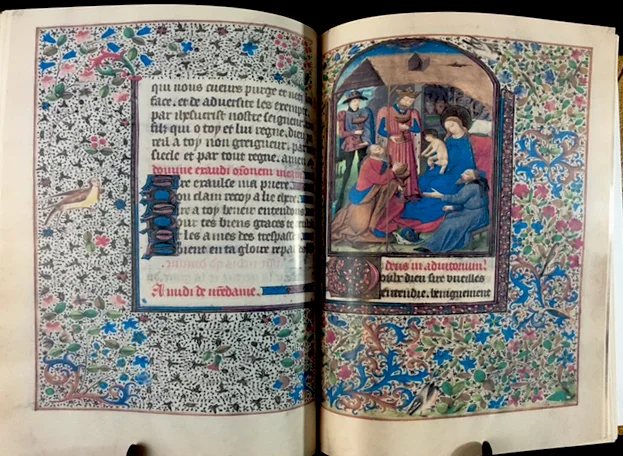 qui nous cueurs purge et nett
face. et de adversite les exempte
par ihesucrist nostre seigneur
filz qui o toy et lui regne. dieu
teil a toy non greigneur. par
siecle et par tout regne. amen
domine exaudi orationem meam
ire exaulse ma priere
on clam recoy a lie chere
ire a toy beneic entendons
our tes biens graces te
les ames des trespasse
oient en ta gloire repa
A midi de nredame.
deus in adiutorium.
oulx dieu sire vueilles
entendre. benignement